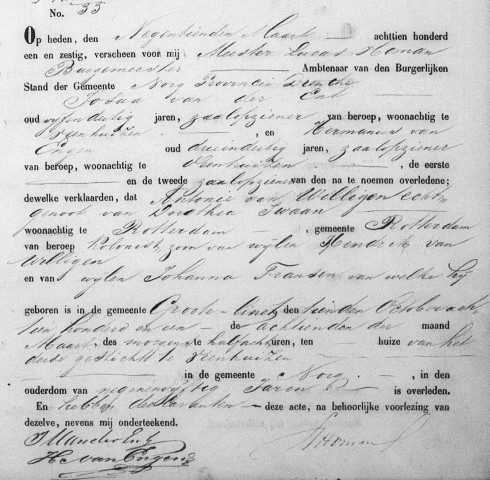 No. 35
Op heden, den Negentienden Maart achttien honderd
een en zestig, verscheen voor mij Meester Lucas Homan
Burgemeester Ambtenaar van den Burgerlijken
Stand der Gemeente Norg Provincie Drenthe
van der
oud vijfendertig jaren, zaalopziener van beroep, woonachtig te
Veenhuizen, en Hermanus van
Engen oud drieendertig jaren, zaalopziener
van beroep, woonachtig te Veenhuizen, de eerste
en de tweede zaalopziener van den na te noemen overledene;
dewelke verklaarden, dat Antonie van Welligen echt-
genoot van Dorothea Swaan
woonachtig te Rotterdam, gemeente Rotterdam
van beroep Kolonist, zoon van wijlen Hendrik van
Welligen
en van wijlen Johanna Fransen van welke hij
geboren is in de gemeente Groote-Lindt, den tienden October acht-
tien honderd en een de achttienden der maand
Maart, des morgens te half acht uren, ten huize van het
derde gesticht te Veenhuizen
in de gemeente Norg, in den
ouderdom van negenenvijftig Jaren is overleden.
En hebben declaranten deze acte, na behoorlijke voorlezing van
dezelve, nevens mij onderteekend.
H. van Engen
Homan